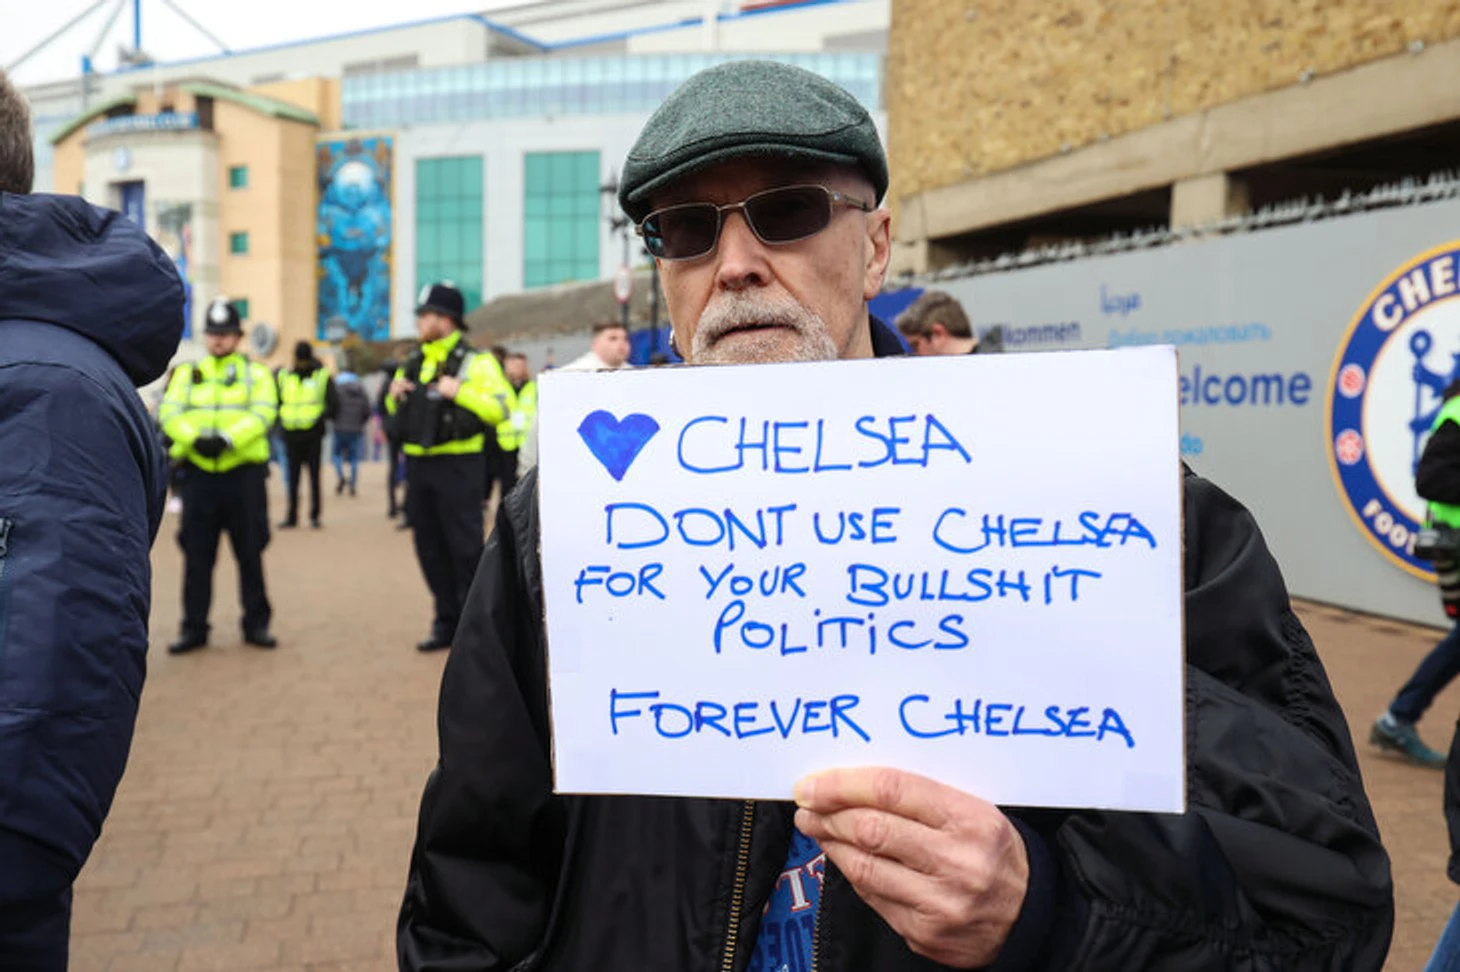 CHELSEA
DONT USE CHELSEA
FOR YOUR BULLSHIT
POLITICS
FOREVER CHELSEA
مرحبا
Добро пожаловать
elcome
CHE
FOOT